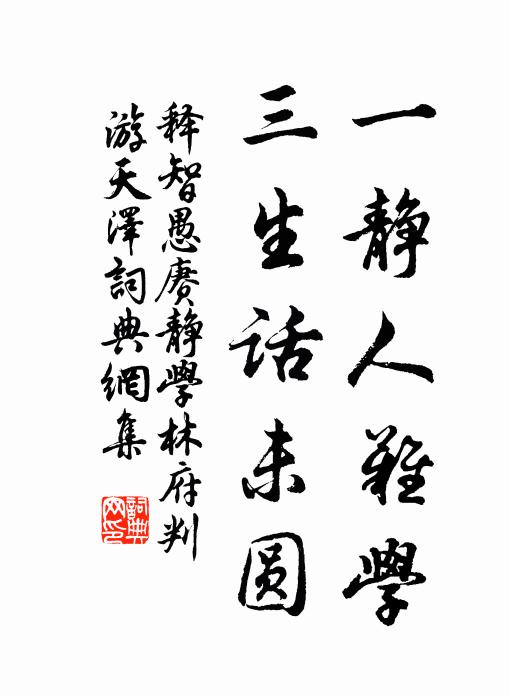 一静人難學
三生话未圆
释智愚赓静學林府判
游天澤詞典網集
詞典
网印